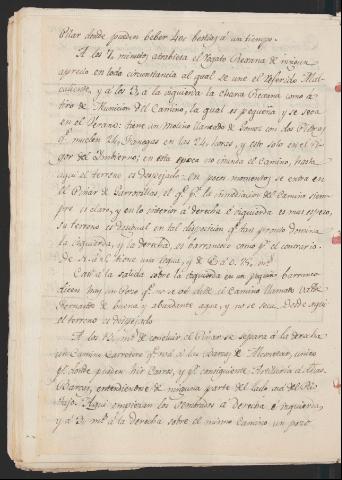 Pilar donde pueden beber 4 ó 6 bestias á un tiempo.
A los 7 minutos atrabiesa el Regato Rexana de ningun
aprecio en toda circunstancia al qual se une el referido Mal-
, y á los 13 a la izquierda la charca Rexana como a
tiro de Municion del Camino, la qual es pequeña y se seca
en el Verano: tiene un Molino llamado de con dos Piedras
qe. muelen 24 Fanegas en las 24 horas, y esto solo en el Ri-
gor del Imbierno; en esta epoca no inunda el camino, hasta
aqui el terreno es despejado. En pocos momentos se entra en
el Pinar de Garrovillas el qe. pr. la inmediacion del Camino siem-
pre es claro, y en lo interior á derecha é izquierda es mas espeso,
su terreno es desigual en tal disposicion qe. tan pronto domina
la izquierda, y la derecha, es barrancoso como pr. el contrario.
de N. á S. tiene una legua, y de E. á O. 75. ms.
Casi a la salida sobre la izquierda en un pequeño barranco
dicen hay un pozo qe. no se ve desde el Camino llamado Valde
de buena y abundante agua, y no se seca. Desde aqui
el terreno es despejado
A los 15 ms. de concluir el Pinar se separa á la derecha
un Camino Carretero qe. va á las Barcas de Alconetar, unico
pr. donde pueden hir Carros, y pr. consiguiente Artilleria á dichas
Barcas, entendiendose de ninguna parte del lado acá del Rio
Tajo. Aqui empiezan los sembrados á derecha é izquierda,
y á 3 ms. á la derecha sobre el mismo Camino un pozo